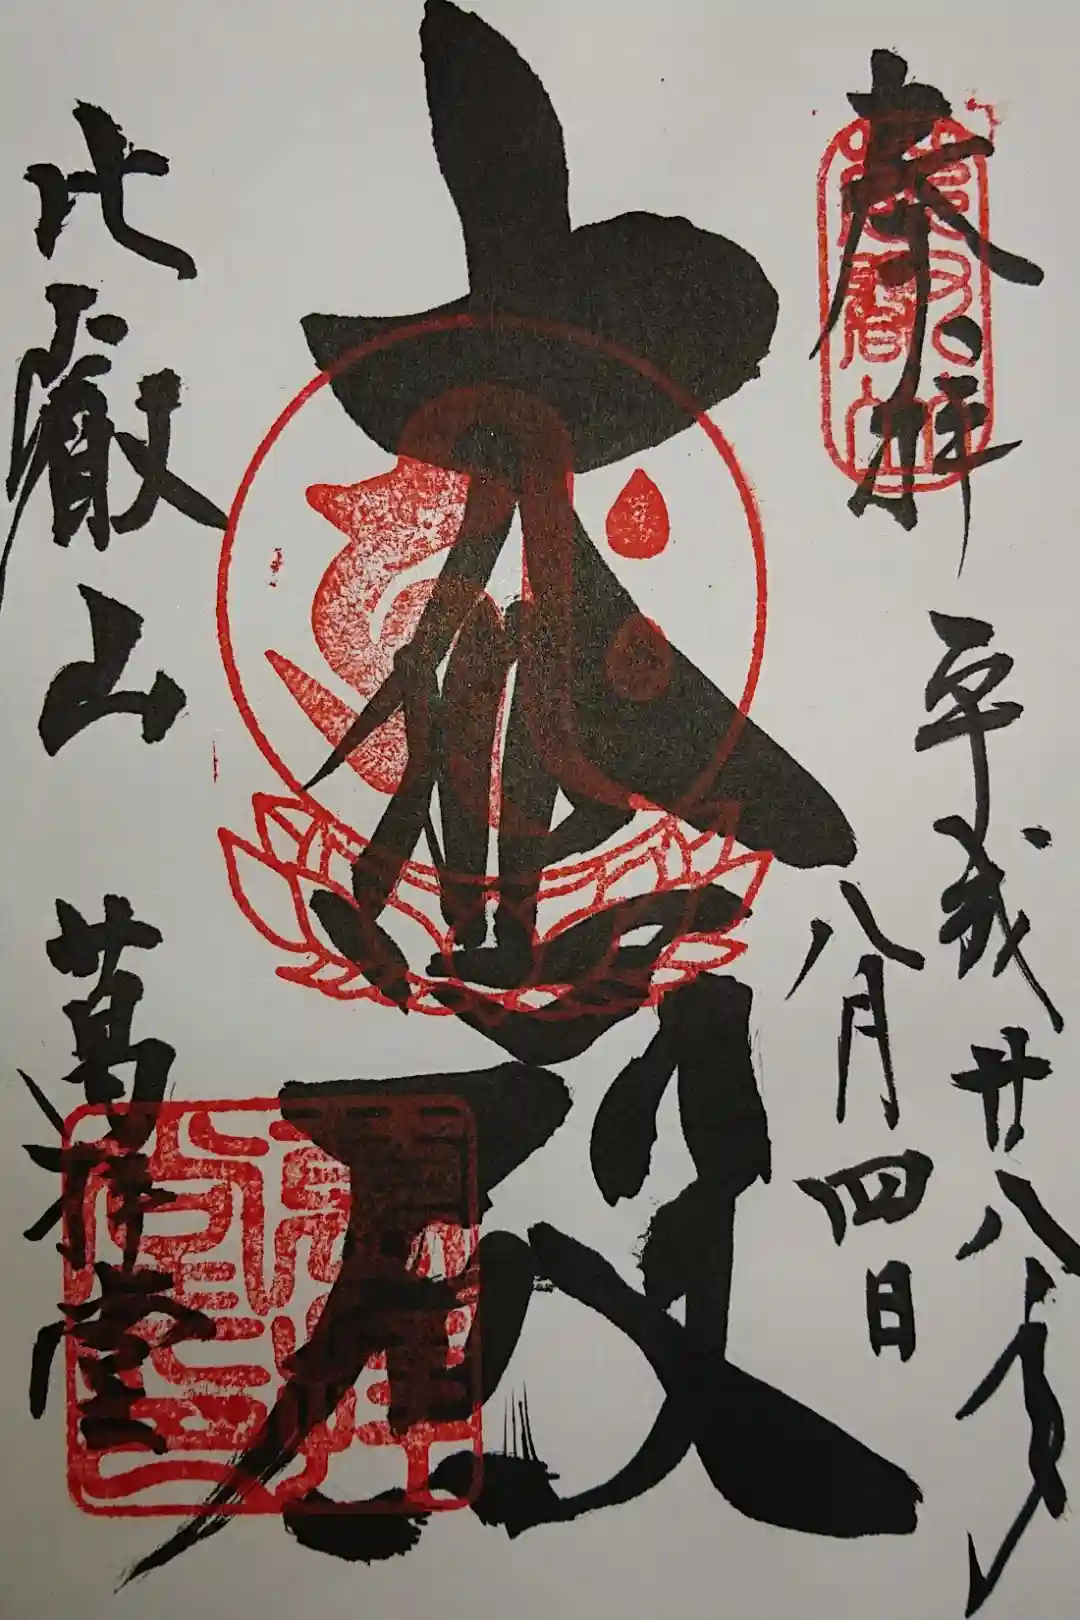 奉拝 平成廿八年
八月四日
大悲殿
比叡山 萬拝堂